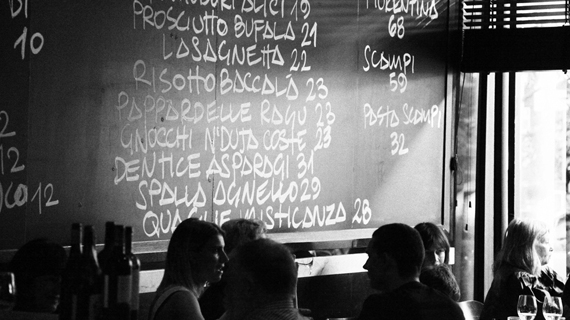 DI
10
2
12
CO 12
ALICI 19
PROSCIUTTO BUFALA 21
LASAGNETTA 22
RISOTTO BACCALÁ 23
PAPPARDELLE RAGU 23
GNOCCHI N'DUJA COSTE 23
DENTICE ASPARAGI 31
SPALLA AGNELLO 29
QUAGLIE MISTICANZA 28
FIORENTINA
68
SCAMPI
59
PASTA SCAMPI
32